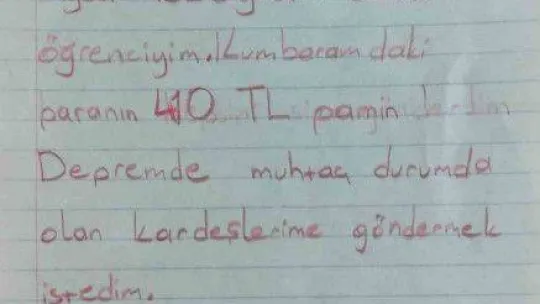 öğrenciyim. Kumbaramdaki
paranın 410 TL
Depremde muhtaç durumda
olan kardeşlerime göndermek
istedim.